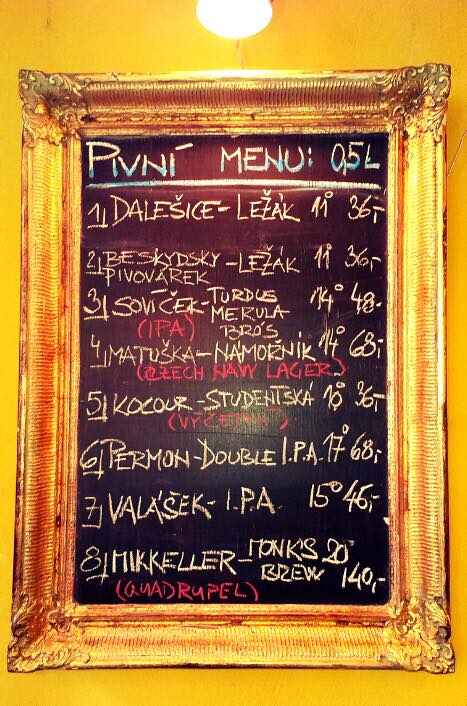 PIVNÍ MENU: 0,5L
1) DALEŠICE - LEŽÁK 11° 36,-
2) BESKYDSKY PIVOVÁREK - LEŽÁK 11° 36,-
3) SOVÍČEK - TURDUS MERULA BRO'S 14° 48,-
(IPA)
4) MATUŠKA - NÁMOŘNÍK 14° 68,-
(CZECH NAVY LAGER)
5) KOCOUR - STUDENTSKÁ 10° 36,-
(VÝČEPNÍ)
6) PERMON - DOUBLE I.P.A. 17° 68,-
7) VALÁŠEK - I.P.A. 15° 46,-
8) MIKKELLER - MONK'S BREW 20° 140,-
(QUADRUPEL)